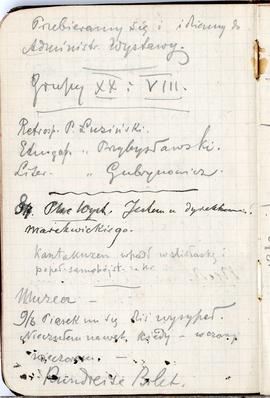 Przebieramy się i idziemy do
Administr. Wystawy.
Grupy XX i VIII.
Retrosp. P. Łuziński.
Etnogr. " Przybysławski.
Liter. " Gubrynowicz.
Plac Wyst. Jestem u dyrektora
Marchwickiego.
wpadł w
Muzea —
9/6 Piasek mi się dziś wysypał.
Nie czułem nawet, kiedy — wczoraj
wieczorem. —
Bundreise Bilet.